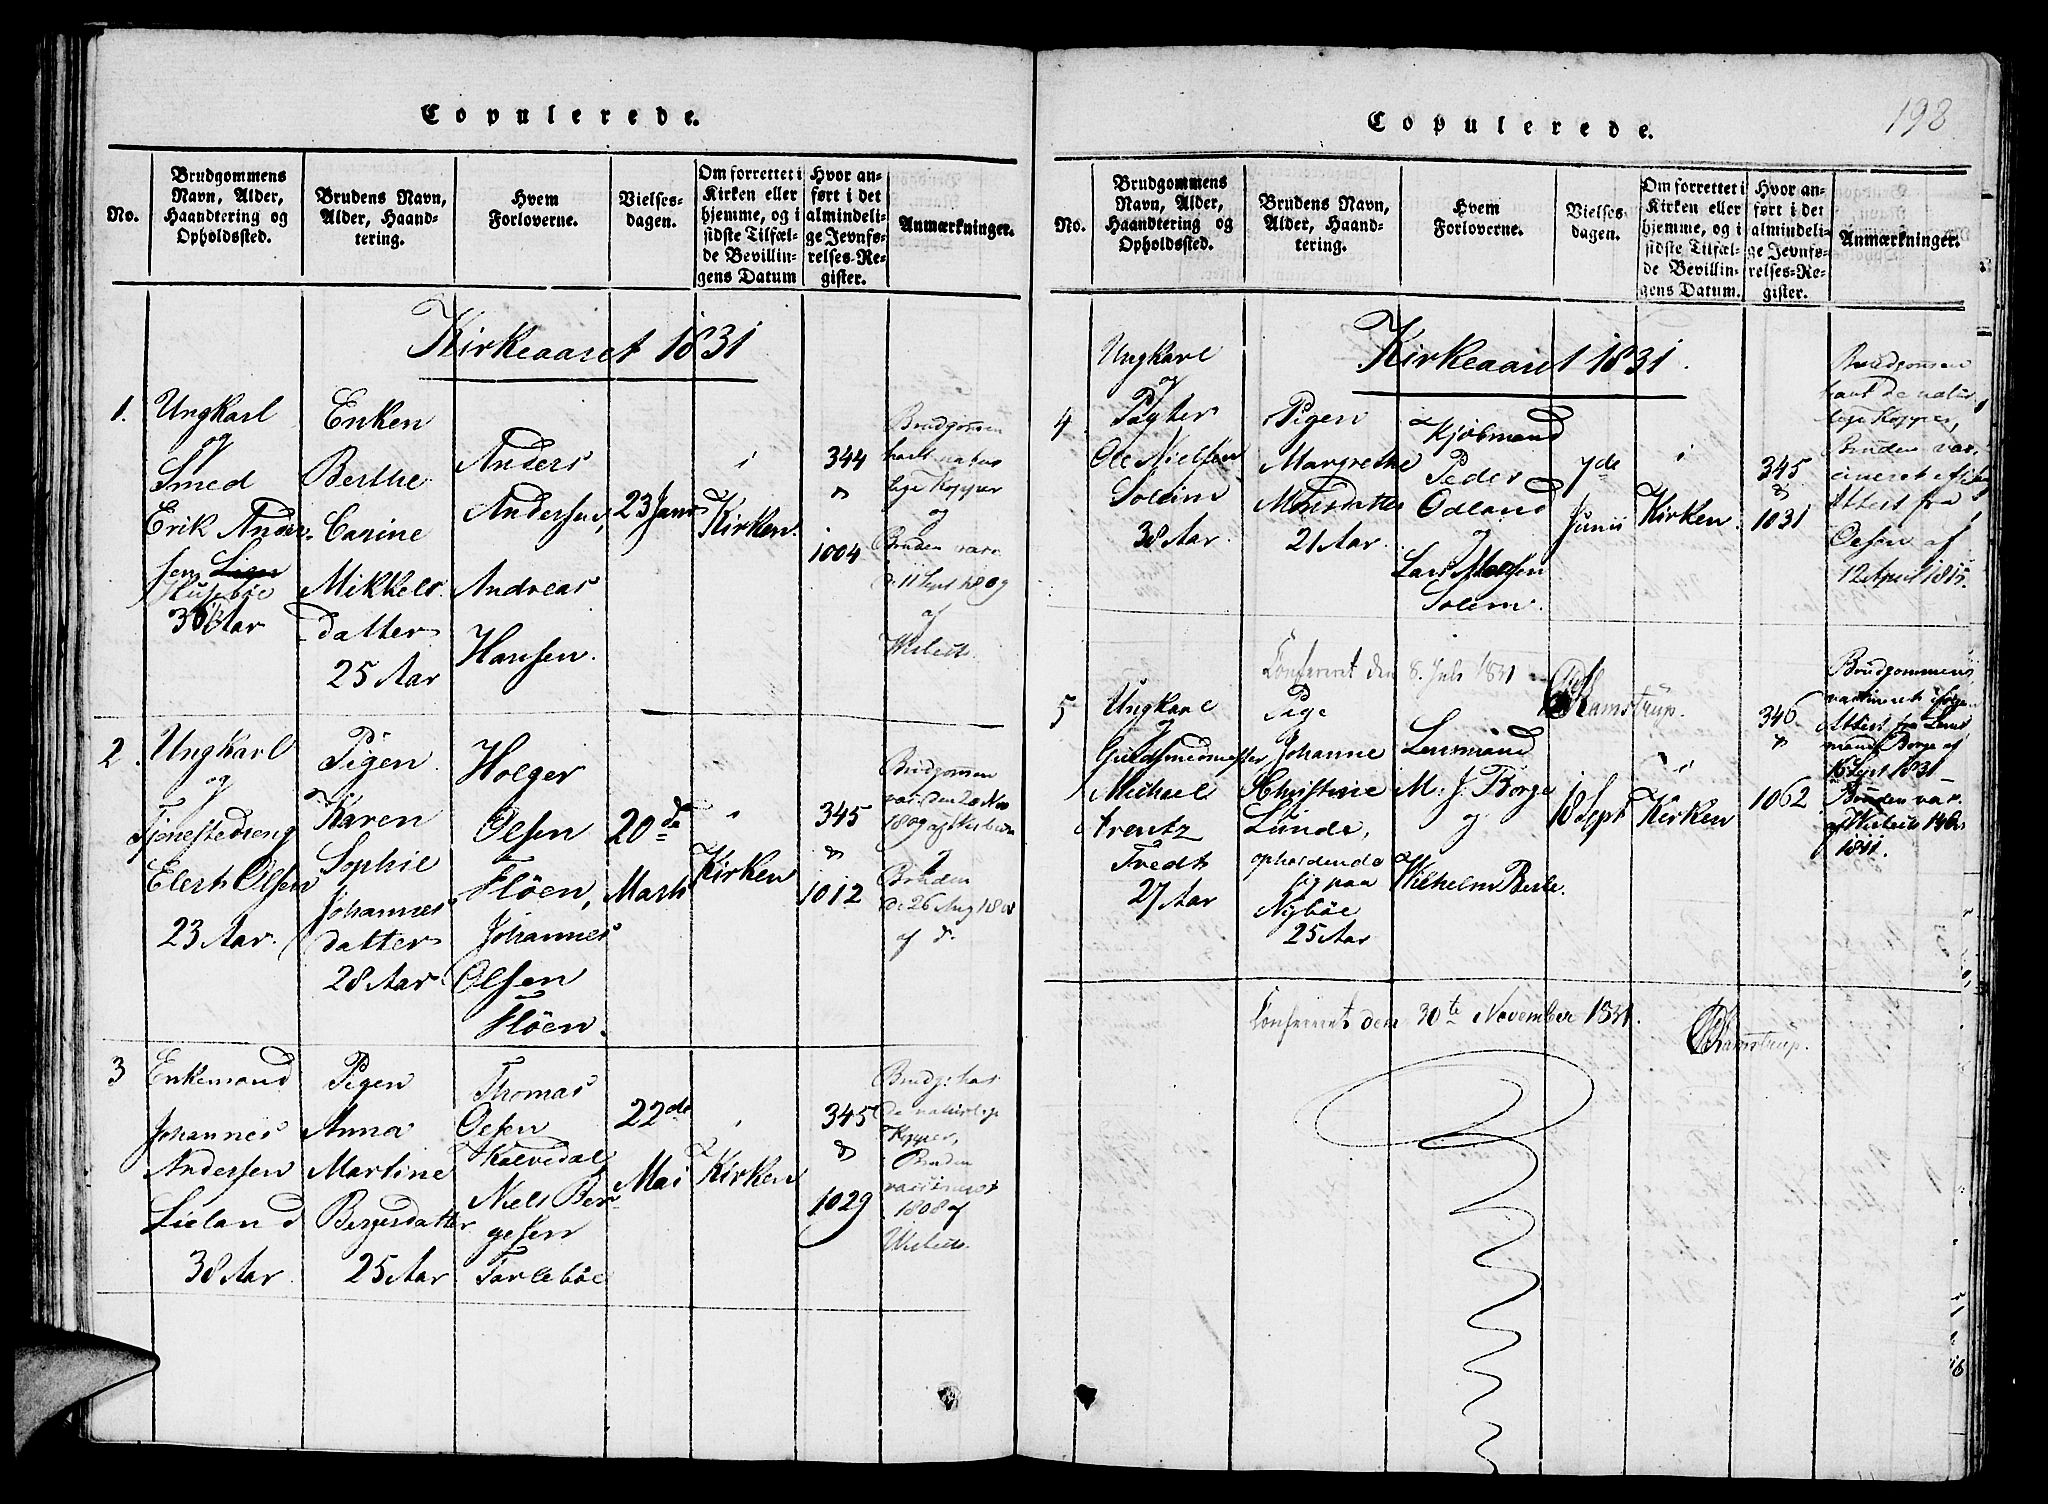 Copulerede.
No.
Brudgommens
Navn, Alder,
Haandtering og
Opholdssted.
Brudens Navn,
Alder, Haand-
tering.
Hvem
Forloverne.
Vielses-
dagen.
Om forrettet i
Kirken eller
hjemme, og i
sidste Tilfæl-
de Bevillin-
gens Datum
Hvor an-
ført i det
almindeli-
ge Jevnfø-
relses-Re-
gister.
Anmærkninger.
Kirkeaaret 1831
1.
Ungkarl
og
Smed
Erik Ander-
sen
Husebøe
Aar
Enken
Berthe
Carine
Mikkels
datter
25 Aar
Anders
Andersen,
Andreas
Hansen.
23 Janr
i
Kirken.
344
&
1004
Brudgomen
havt natur
lige Kopper
og
Bruden vacc.
d. 11 Sept 1809
af
2.
Ungkarl
og
Elert Olsen
23 Aar.
Pigen
Karen
Sophie
Johannes
datter
28 Aar
Holger
Olsen
Fløen,
Johannes
Olsen
Fløen.
20de
Marts
i
Kirken
345
&
1012
Brudgomen
Bruden
af d.
3
Enkemand
Johannes
Andersen
Lieland
38 Aar
Pigen
Anna
Martine
Bergesdatter
25 Aar
Thomas
Olsen
Kalvedal
Niels Ber-
gesen
Tarlebøe
22de
Mai
i
Kirken
345
&
1029
Brudg. has
de naturlige
Kopper,
Bruden
vaccineret
1808 af
198
Copulerede.
No.
Brudgommens
Navn, Alder,
Haandtering og
Opholdssted.
Brudens Navn,
Alder, Haand-
tering.
Hvem
Forloverne.
Vielses-
dagen.
Om forrettet i
Kirken eller
hjemme, og i
sidste Tilfæl-
de Bevillin-
gens Datum.
Hvor an-
ført i det
almindeli-
ge Jevnfø-
relses-Re-
gister.
Anmærkninger.
Kirkeaaret 1831.
4
Ungkarl
og
Ole Nielsen
Solem
38 Aar.
Pigen
Margrethe
Monsdatter
21 Aar.
Kjøbmand
Peder
Odland
og
Lars
Solem.
7de
Junii
i
Kirken.
345
&
1031
Brudgomen
havt de natur
lige Kopper,
Bruden vac-
cineret efter
Attest fra
af
12 April 1815.
Confereret den 8. Juli 1831
Ramstrup.
5
Ungkarl
og
Guldsmedmester
Michael
Arentz
Tredt
27 Aar
Pige
Johanne
Christine
Lunde,
opholdende
sig paa
Nybøe
25 Aar
Lensmand
M. J. Borge
og
Wilhelm Berle.
18 Sept
i
Kirken
346
&
1062
Brudgommens
vaccineret ifølge
Attest fra Lens
mand Borge af
Sept 1831
Bruden vac.
1811.
Confereret den 30te November 1831.
Ramstrup.